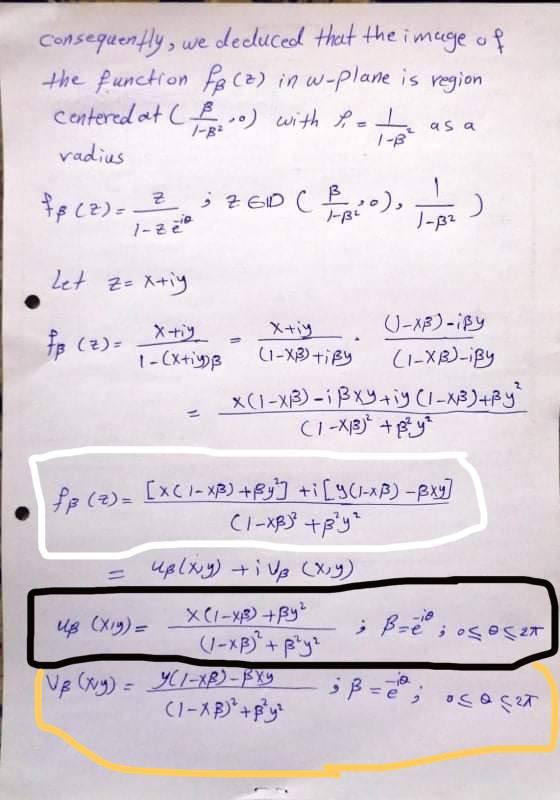 consequently, we deduced that the image of
the function fβ(z) in w-plane is region
centered at (β/(1-β²), 0) with r = 1/(1-β²) as a
radius
fβ(z) = z/(1-z e^{-iθ}) ; z ∈ ID (β/(1-β²), 0), 1/(1-β²) )
Let z = x+iy
fβ(z) = (x+iy)/(1-(x+iy)β) = (x+iy)/((1-xβ)+iβy) · ((1-xβ)-iβy)/((1-xβ)-iβy)
= (x(1-xβ)-iβxy+iy(1-xβ)+βy²)/((1-xβ)²+β²y²)
fβ(z) = ([x(1-xβ)+βy²]+i[y(1-xβ)-βxy])/((1-xβ)²+β²y²)
= uβ(x,y) + i vβ(x,y)
uβ(x,y) = (x(1-xβ)+βy²)/((1-xβ)²+β²y²) ; β=e^{-iθ} ; 0≤θ≤2π
vβ(x,y) = (y(1-xβ)-βxy)/((1-xβ)²+β²y²) ; β=e^{-iθ} ; 0≤θ≤2π